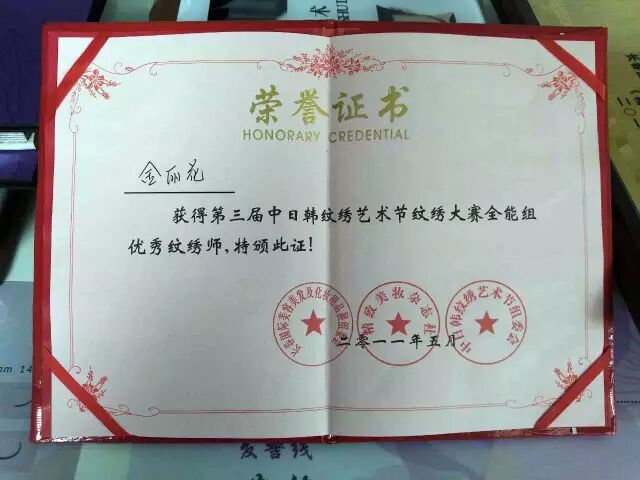 荣誉证书
HONORARY CREDENTIAL
金丽花
获得第三届中日韩纹绣艺术节纹绣大赛全能组
优秀纹绣师,特颁此证!
格致美妆杂志社
中日韩纹绣艺术节组委会
二零一一年五月